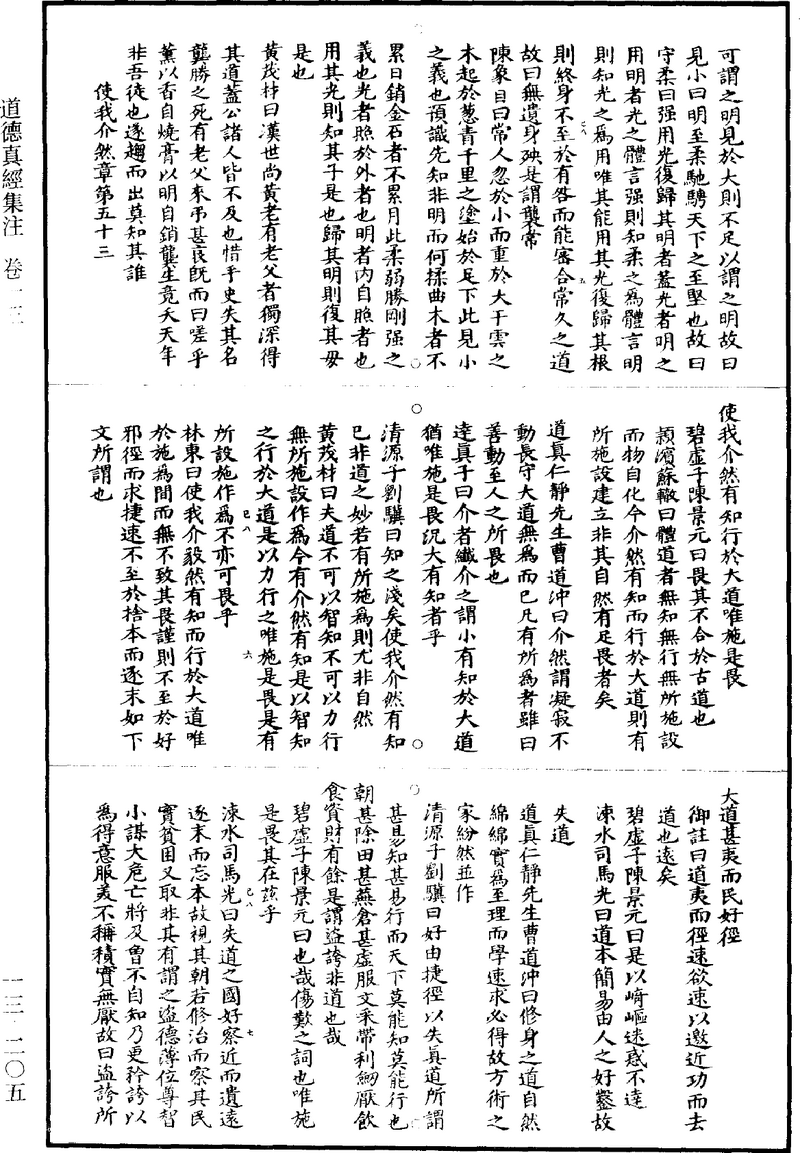 可謂之明見於大則不足以謂之明故曰
見小曰明至柔馳騁天下之至堅也故曰
守柔曰强用光復歸其明者蓋光者明之
用明者光之體言强則知柔之爲體言明
則知光之爲用唯其能用其光復歸其根
則終身不至於有咎而能審合常久之道
故曰無遺身殃是謂襲常
陳象目曰常人忽於小而重於大干雲之
木起於葱青千里之塗始於足下此見小
之義也預識先知非明而何揉曲木者不
累日銷金石者不累月此柔弱勝剛强之
義也光者照於外者也明者内自照者也
用其光則知其子是也歸其明則復其母
是也
黄茂材曰漢世尚黄老有老父者獨深得
其道蓋公諸人皆不及也惜乎史失其名
龔勝之死有老父來弔甚哀既而曰嗟乎
薰以香自燒膏以明自銷龔生竟夭天年
非吾徒也遂趨而出莫知其誰
使我介然章第五十三
使我介然有知行於大道唯施是畏
碧虛子陳景元曰畏其不合於古道也
潁濱蘇轍曰體道者無知無行無所施設
而物自化今介然有知而行於大道則有
所施設建立非其自然有足畏者矣
道真仁靜先生曹道沖曰介然謂凝寂不
動長守大道無爲而已凡有所爲者雖曰
善動至人之所畏也
達真子曰介者纖介之謂小有知於大道
猶唯施是畏況大有知者乎
清源子劉驥曰知之淺矣使我介然有知
已非道之妙若有所施爲則尤非自然
黄茂材曰夫道不可以智知不可以力行
無所施設作爲今有介然有知是以智知
之行於大道是以力行之唯施是畏是有
所設施作爲不亦可畏乎
林東曰使我介毅然有知而行於大道唯
於施爲間而無不致其畏謹則不至於好
邪徑而求捷速不至於捨本而逐末如下
文所謂也
大道甚夷而民好徑
御註曰道夷而徑速欲速以邀近功而去
道也遠矣
碧虛子陳景元曰是以崎嶇迷惑不達
涑水司馬光曰道本簡易由人之好鑿故
失道
道真仁靜先生曹道沖曰修身之道自然
綿綿實爲至理而學速求必得故方術之
家紛然並作
清源子劉驥曰好由捷徑以失真道所謂
甚易知甚易行而天下莫能知莫能行也
朝甚除田甚蕪倉甚虛服文采帶利劒厭飲
食資財有餘是謂盜誇非道也哉
碧虛子陳景元曰也哉傷歎之詞也唯施
是畏其在茲乎
涑水司馬光曰失道之國好察近而遺遠
逐末而忘本故視其朝若修治而察其民
實貧困又取非其有謂之盜德薄位尊智
小謀大危亡將及曾不自知乃更矜誇以
爲得意服美不稱積實無厭故曰盜誇所
道德真經集注 卷一三
一三·二〇五